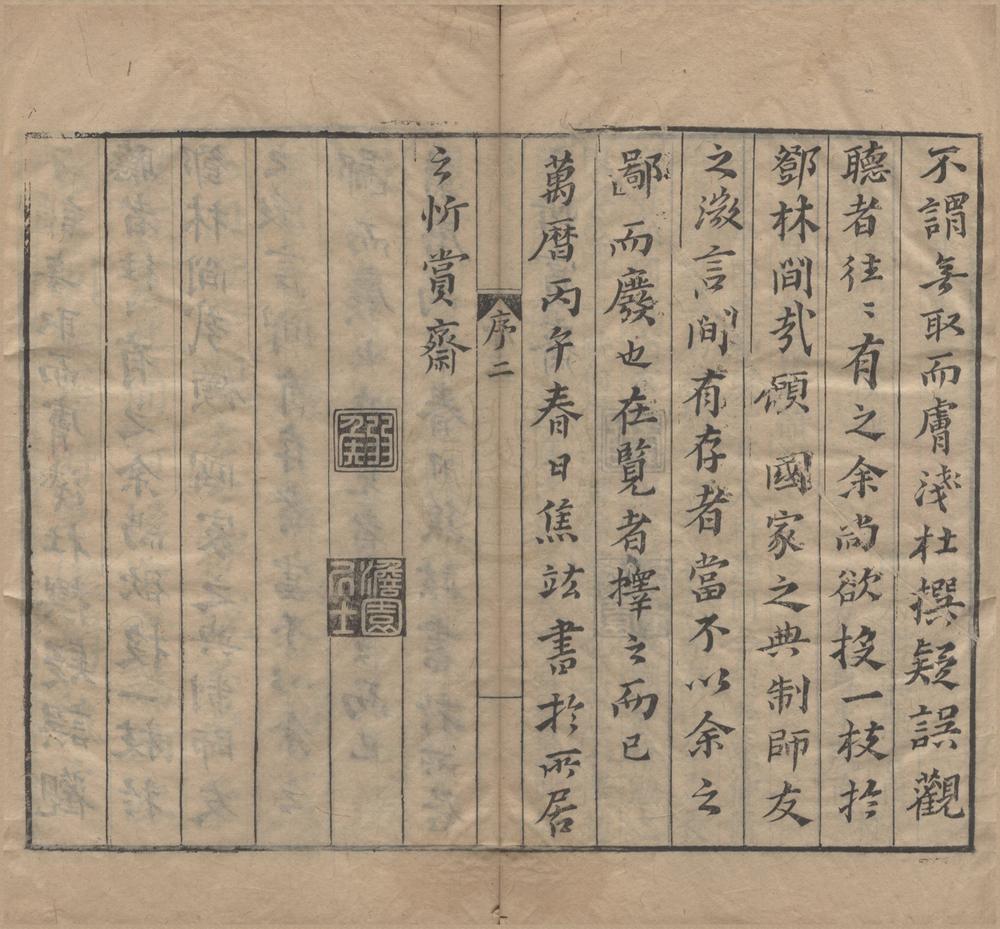 不謂無取而膚淺杜撰疑誤觀
聽者往〻有之余尚欲投一枝於
鄧林間哉顧國家之典制師友
之微言間有存者當不以余之
鄙而廢也在覽者擇之而已
萬曆丙午春日焦竑書於所居
序二
之忻賞齋
弱矦
澹園居士